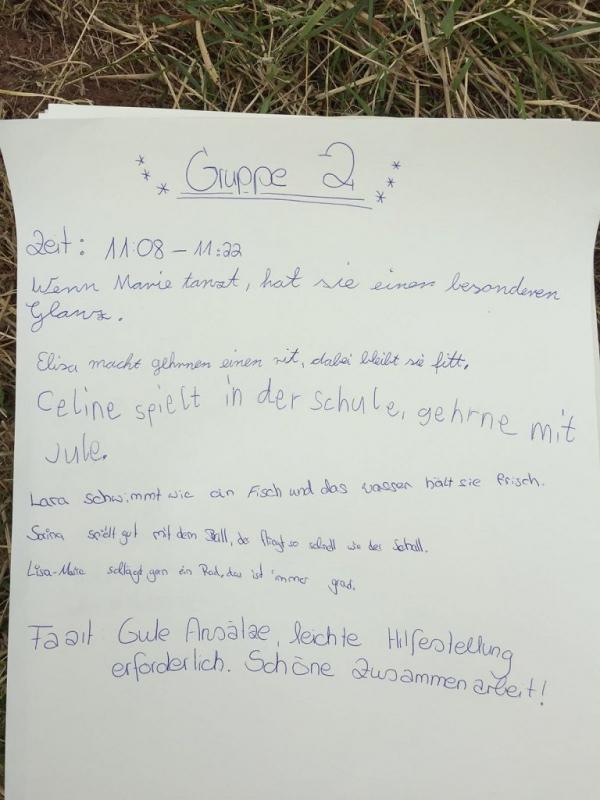 Gruppe 2
Zeit: 11:08 – 11:22
Wenn Marie tanzt, hat sie einen besonderen
Glanz.
Elisa macht gehrnen einen rit, dabei bleibt sie fitt.
Celine spielt in der schule, gehrne mit
Jule.
Lara schwimmt wie ein Fisch und das wasser hält sie frisch.
spielt gut mit dem Ball, der fliegt so schnell wie der Schall.
Lisa-Marie schlägt gern ein Rad, das ist immer grad.
Fazit Gute Ansätze, leichte Hilfestellung
erforderlich. Schöne Zusammenarbeit!